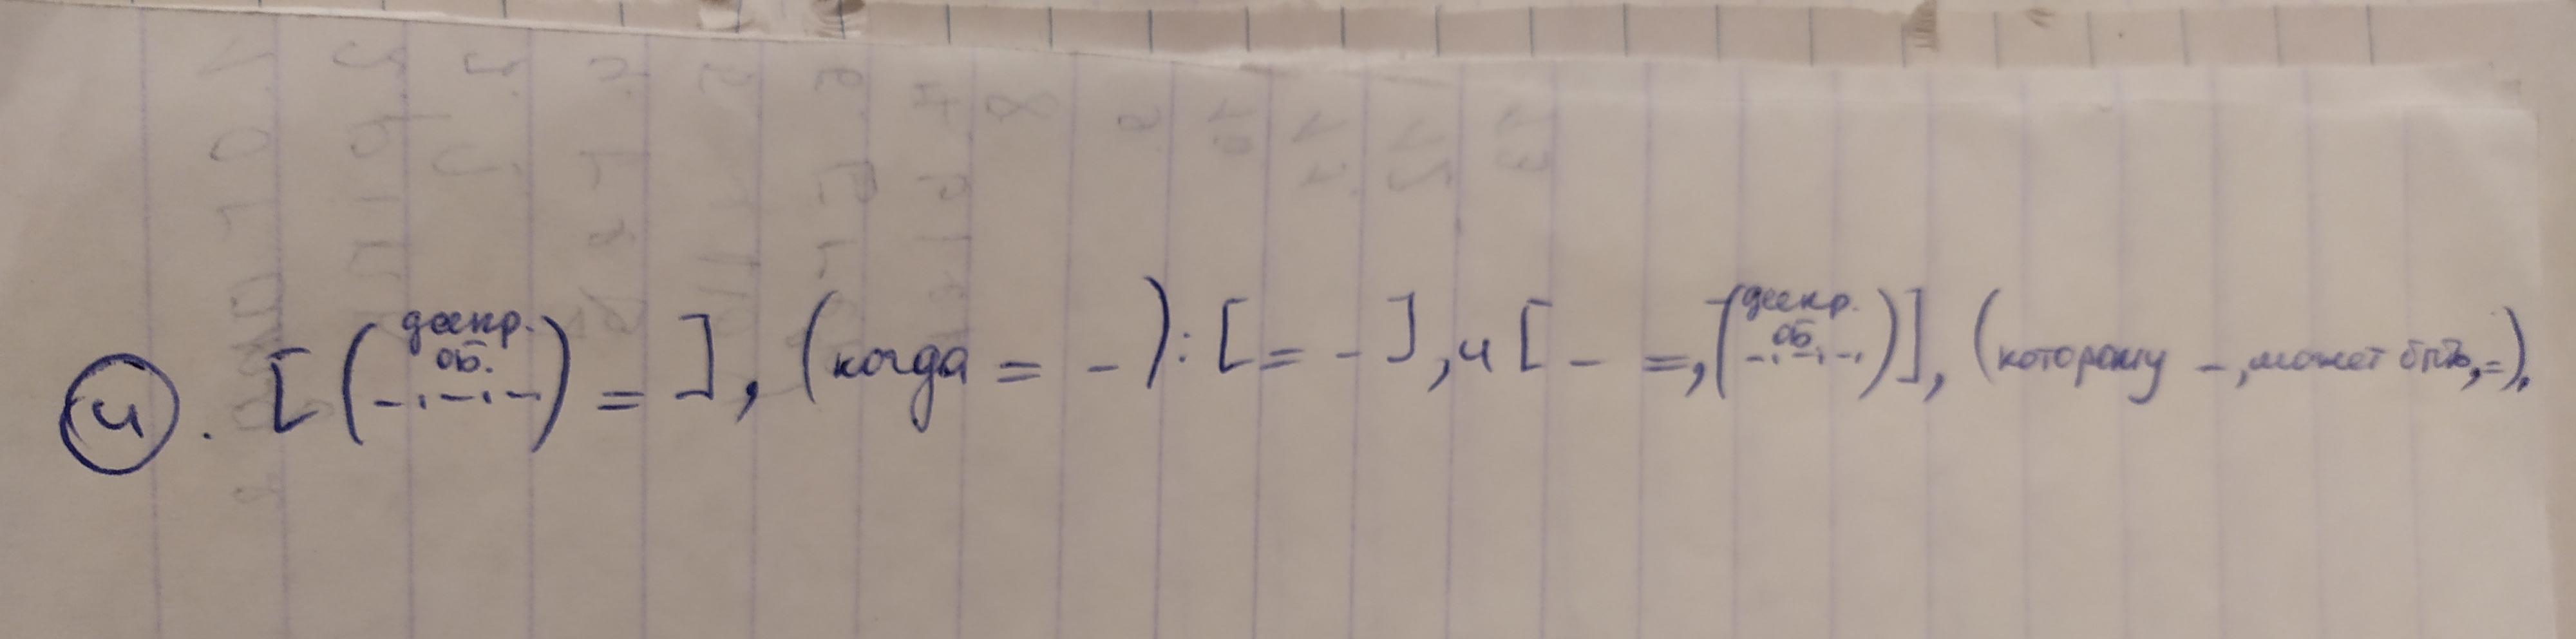 4. [(деепр. об. -.-.-) = ], (когда = -): [= -], и [- =, (деепр. об. -.-.-.)], (которому -, может быть, =).